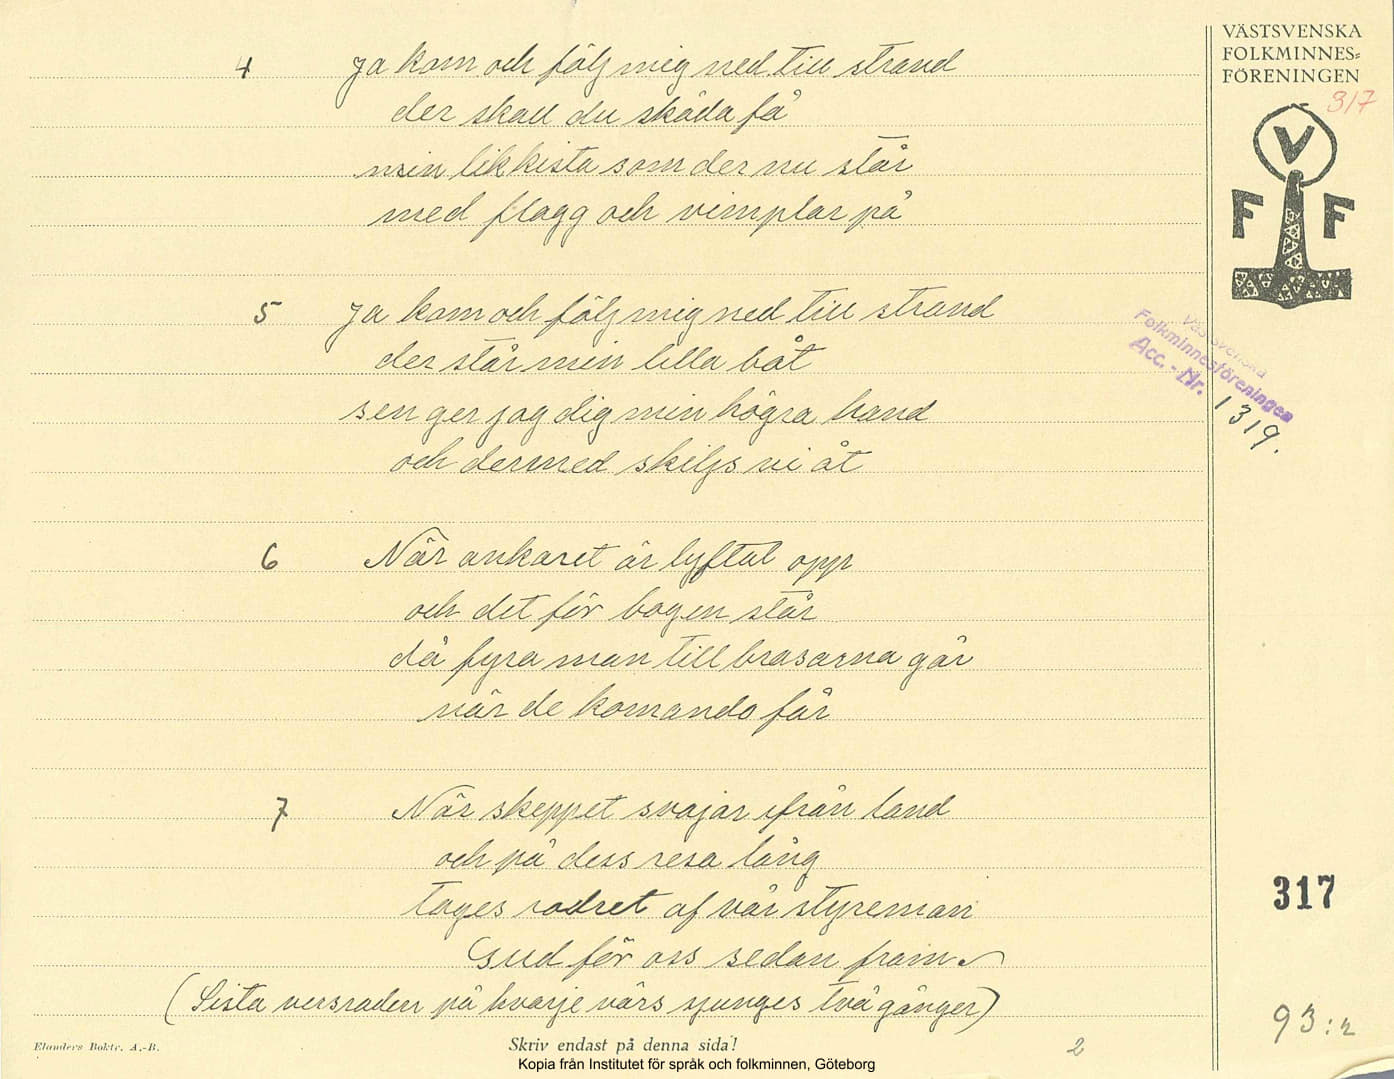 4 Ja kom och följ mig ned till strand
der skall du skåda få
min likkista som der nu står
med flagg och vimplar på
5 Ja kom och följ mig ned till strand
der står min lilla båt
sen ger jag dig min högra hand
och dermed skiljs vi åt
6 När ankaret är lyftat opp
och det för bogen står
då fyra man till brasarna går
när de komando får
7 När skeppet svajar ifrån land
och på dess resa lång
tages rodret af vår styreman
Gud för oss sedan fram.
(Sista versraden på hvarje värs sjunges två gånger)
Elanders Boktr. A.-B.
Skriv endast på denna sida!
2
Kopia från Institutet för språk och folkminnen, Göteborg
VÄSTSVENSKA
FOLKMINNES-
FÖRENINGEN
317
V
F F
Västsvenska
Folkminnesföreningen
Acc. - Nr. 1319.
317
93:2